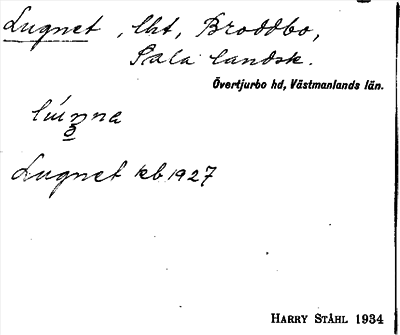 Lugnet, lht, Broddbo,
Sala landsk.
Övertjurbo hd, Västmanlands län.
Lugnet kb 1927
HARRY STÅHL 1934